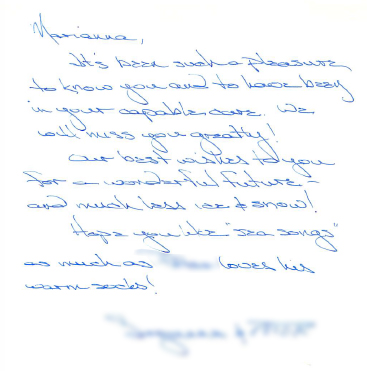 Marianna,
It's been such a pleasure
to know you and to have been
in your capable care. We
will miss you greatly!
Our best wishes to you
for a wonderful future -
and much less ice & snow!
Hope you like "sea songs"
as much as loves his
warm socks!